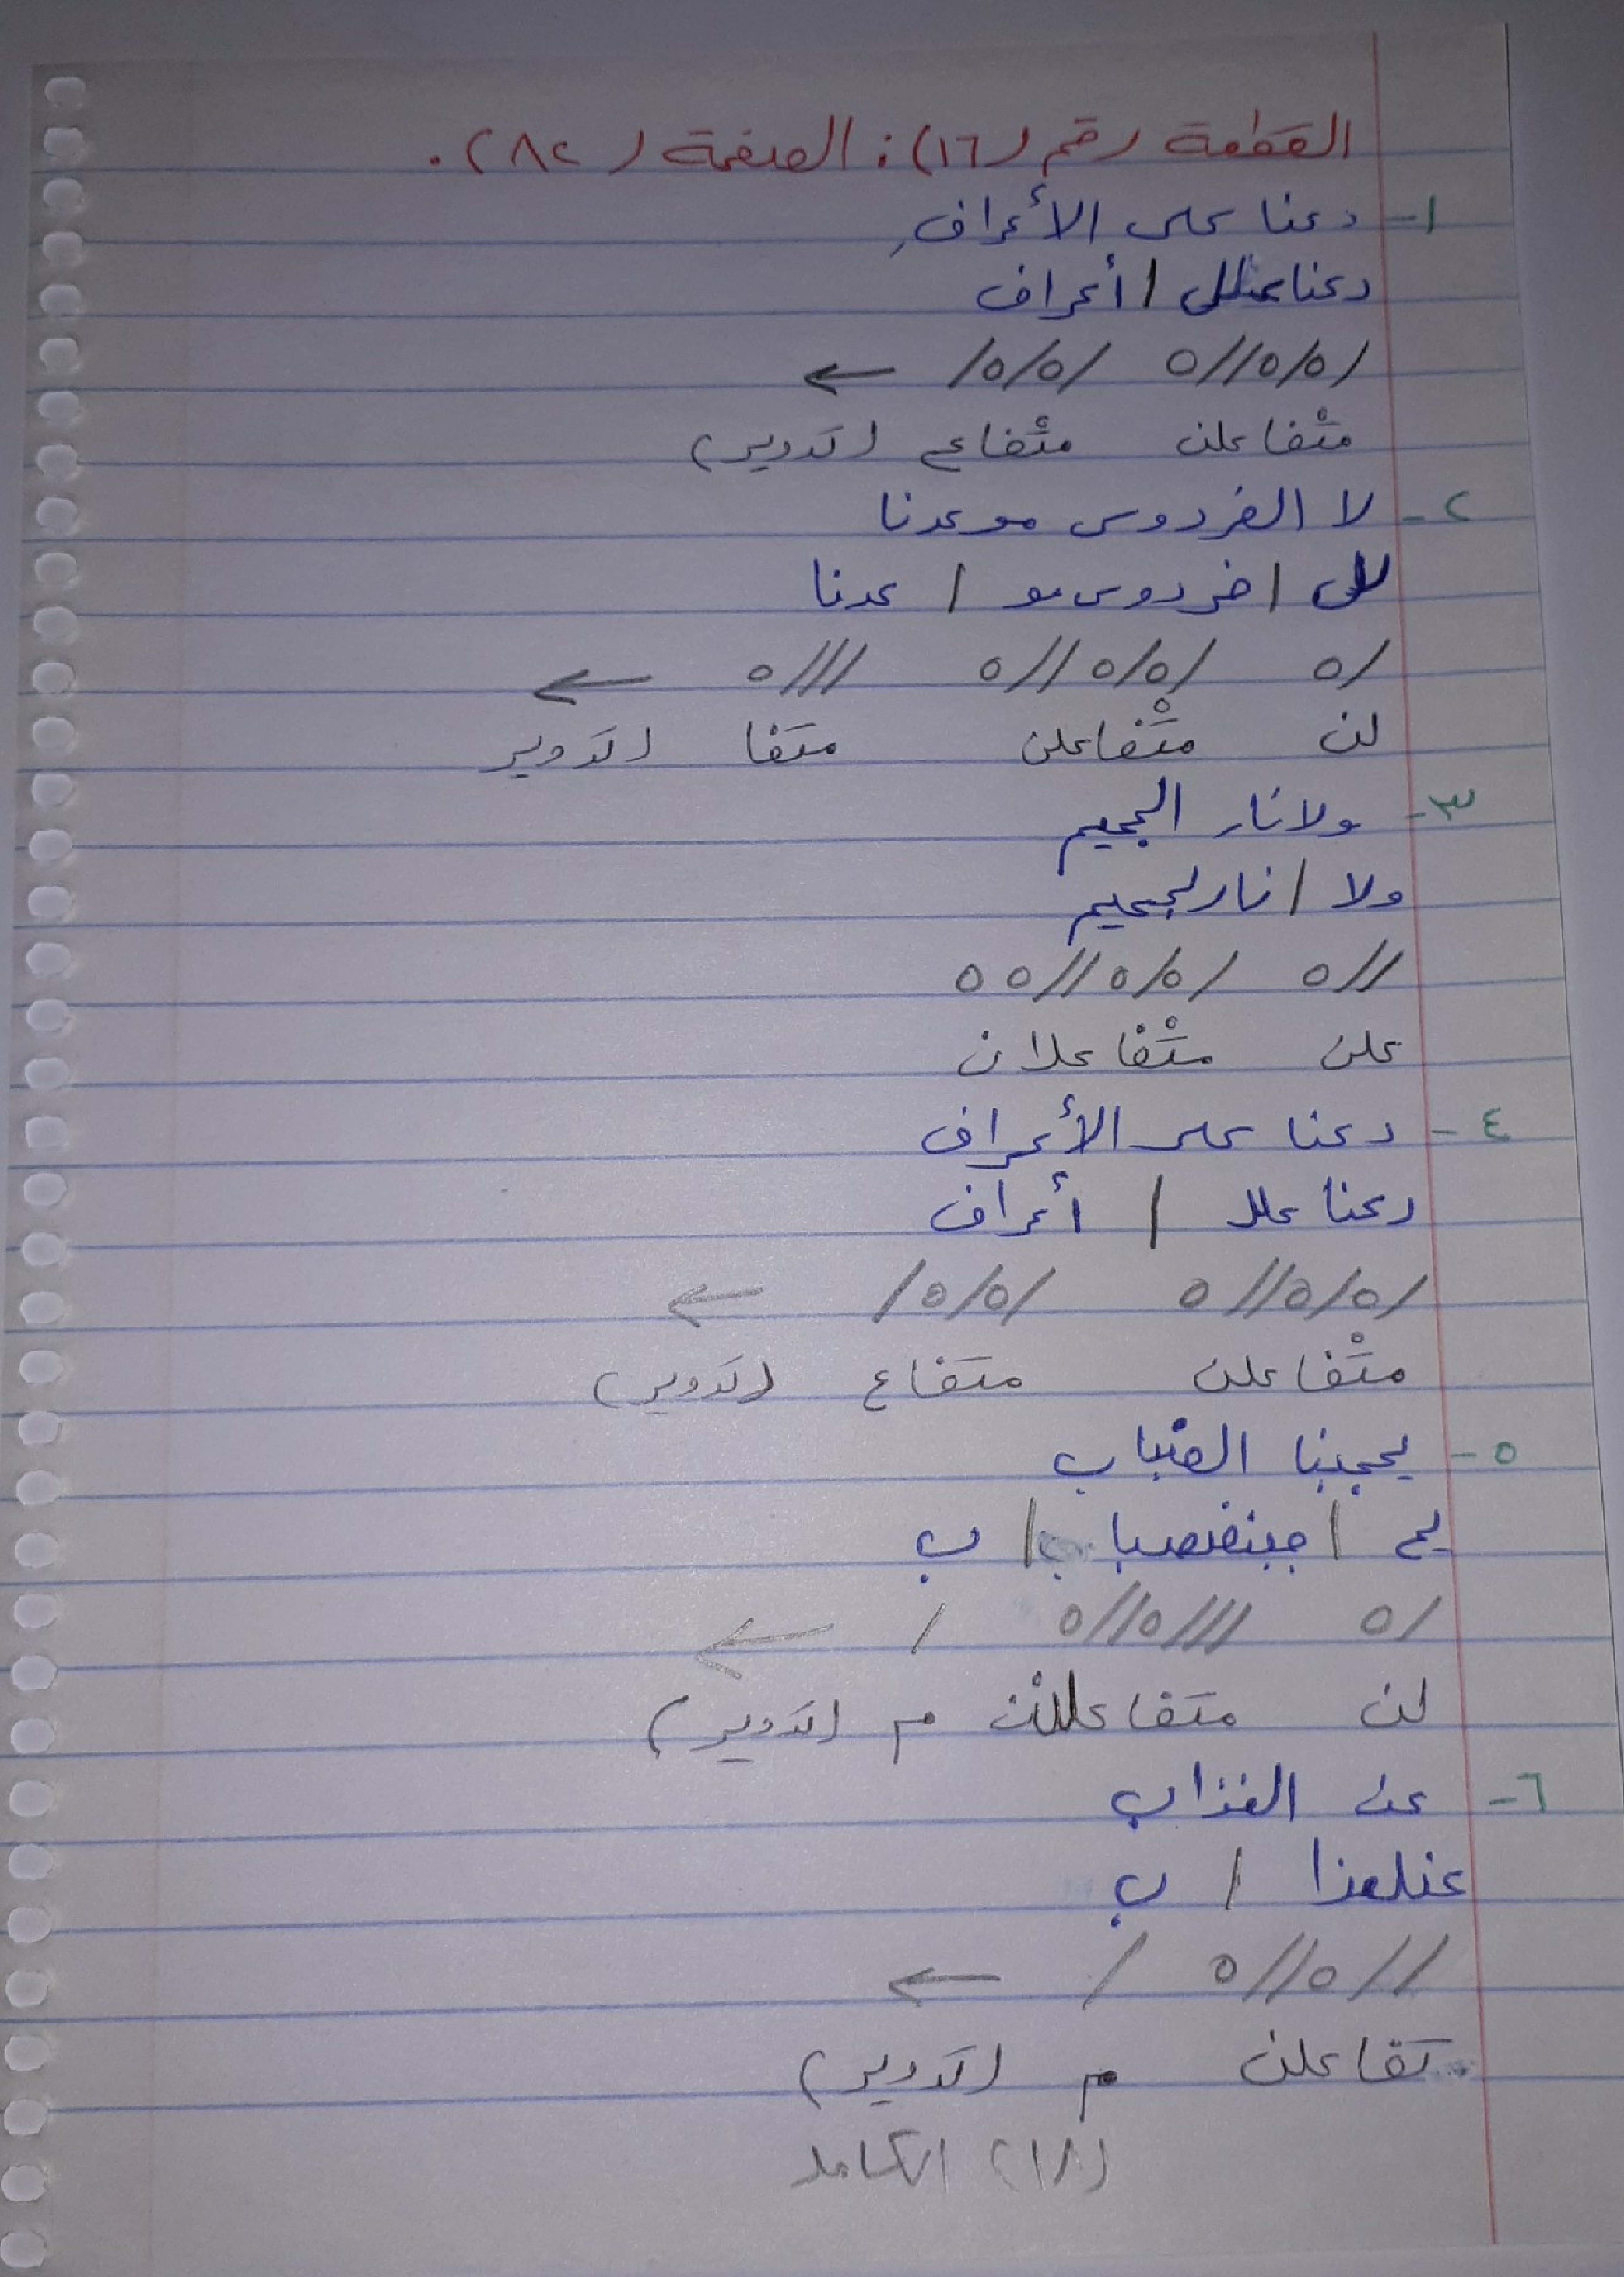 القطعة رقم (١٦): الصفحة (٨٢).
١- دعنا على الأعرافِ
دعنا علل / أعراف
/٥/٥//٥ /٥/٥/ ←
متْفاعلن متْفاع (تدوير)
٢- لا الفردوس موعدنا
لل / فردوس مو / عدنا
/٥ /٥/٥//٥ ///٥ ←
لن متْفاعلن متفا (تدوير
٣- ولا نار الجحيم
ولا / نار لجحيم
//٥ /٥/٥//٥٥
علن متْفاعلان
٤- دعنا على الأعراف
دعنا علل / أعراف
/٥/٥//٥ /٥/٥/ ←
متْفاعلن متفاع (تدوير)
٥- يحجبنا الضباب
يح / جبنضضبا / ب
/٥ ///٥//٥ / ←
لن متفاعلن م (تدوير)
٦- عن العذاب
عنلعذا / ب
//٥//٥ / ←
تفاعلن م (تدوير)
(١٨) الكامل